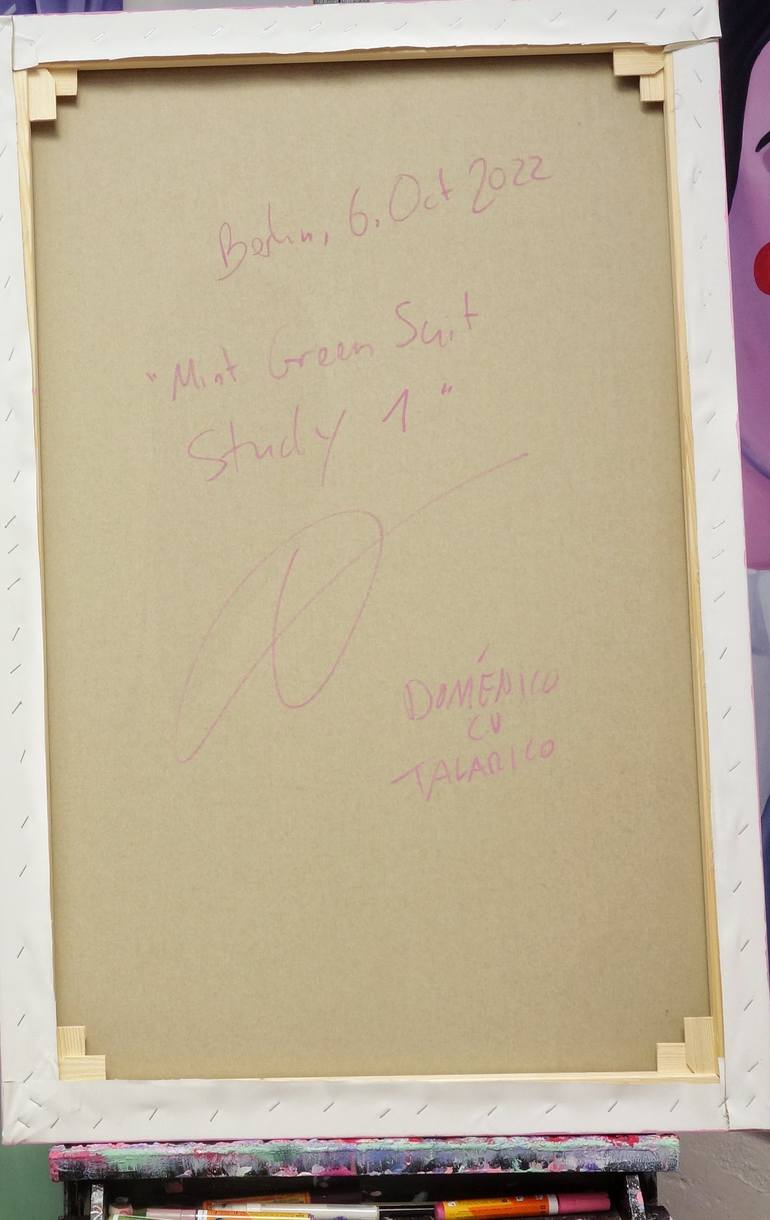 Berlin, 6. Oct 2022
"Mint Green Suit
Study 1"
DOMÉNICO
CV
TALARICO